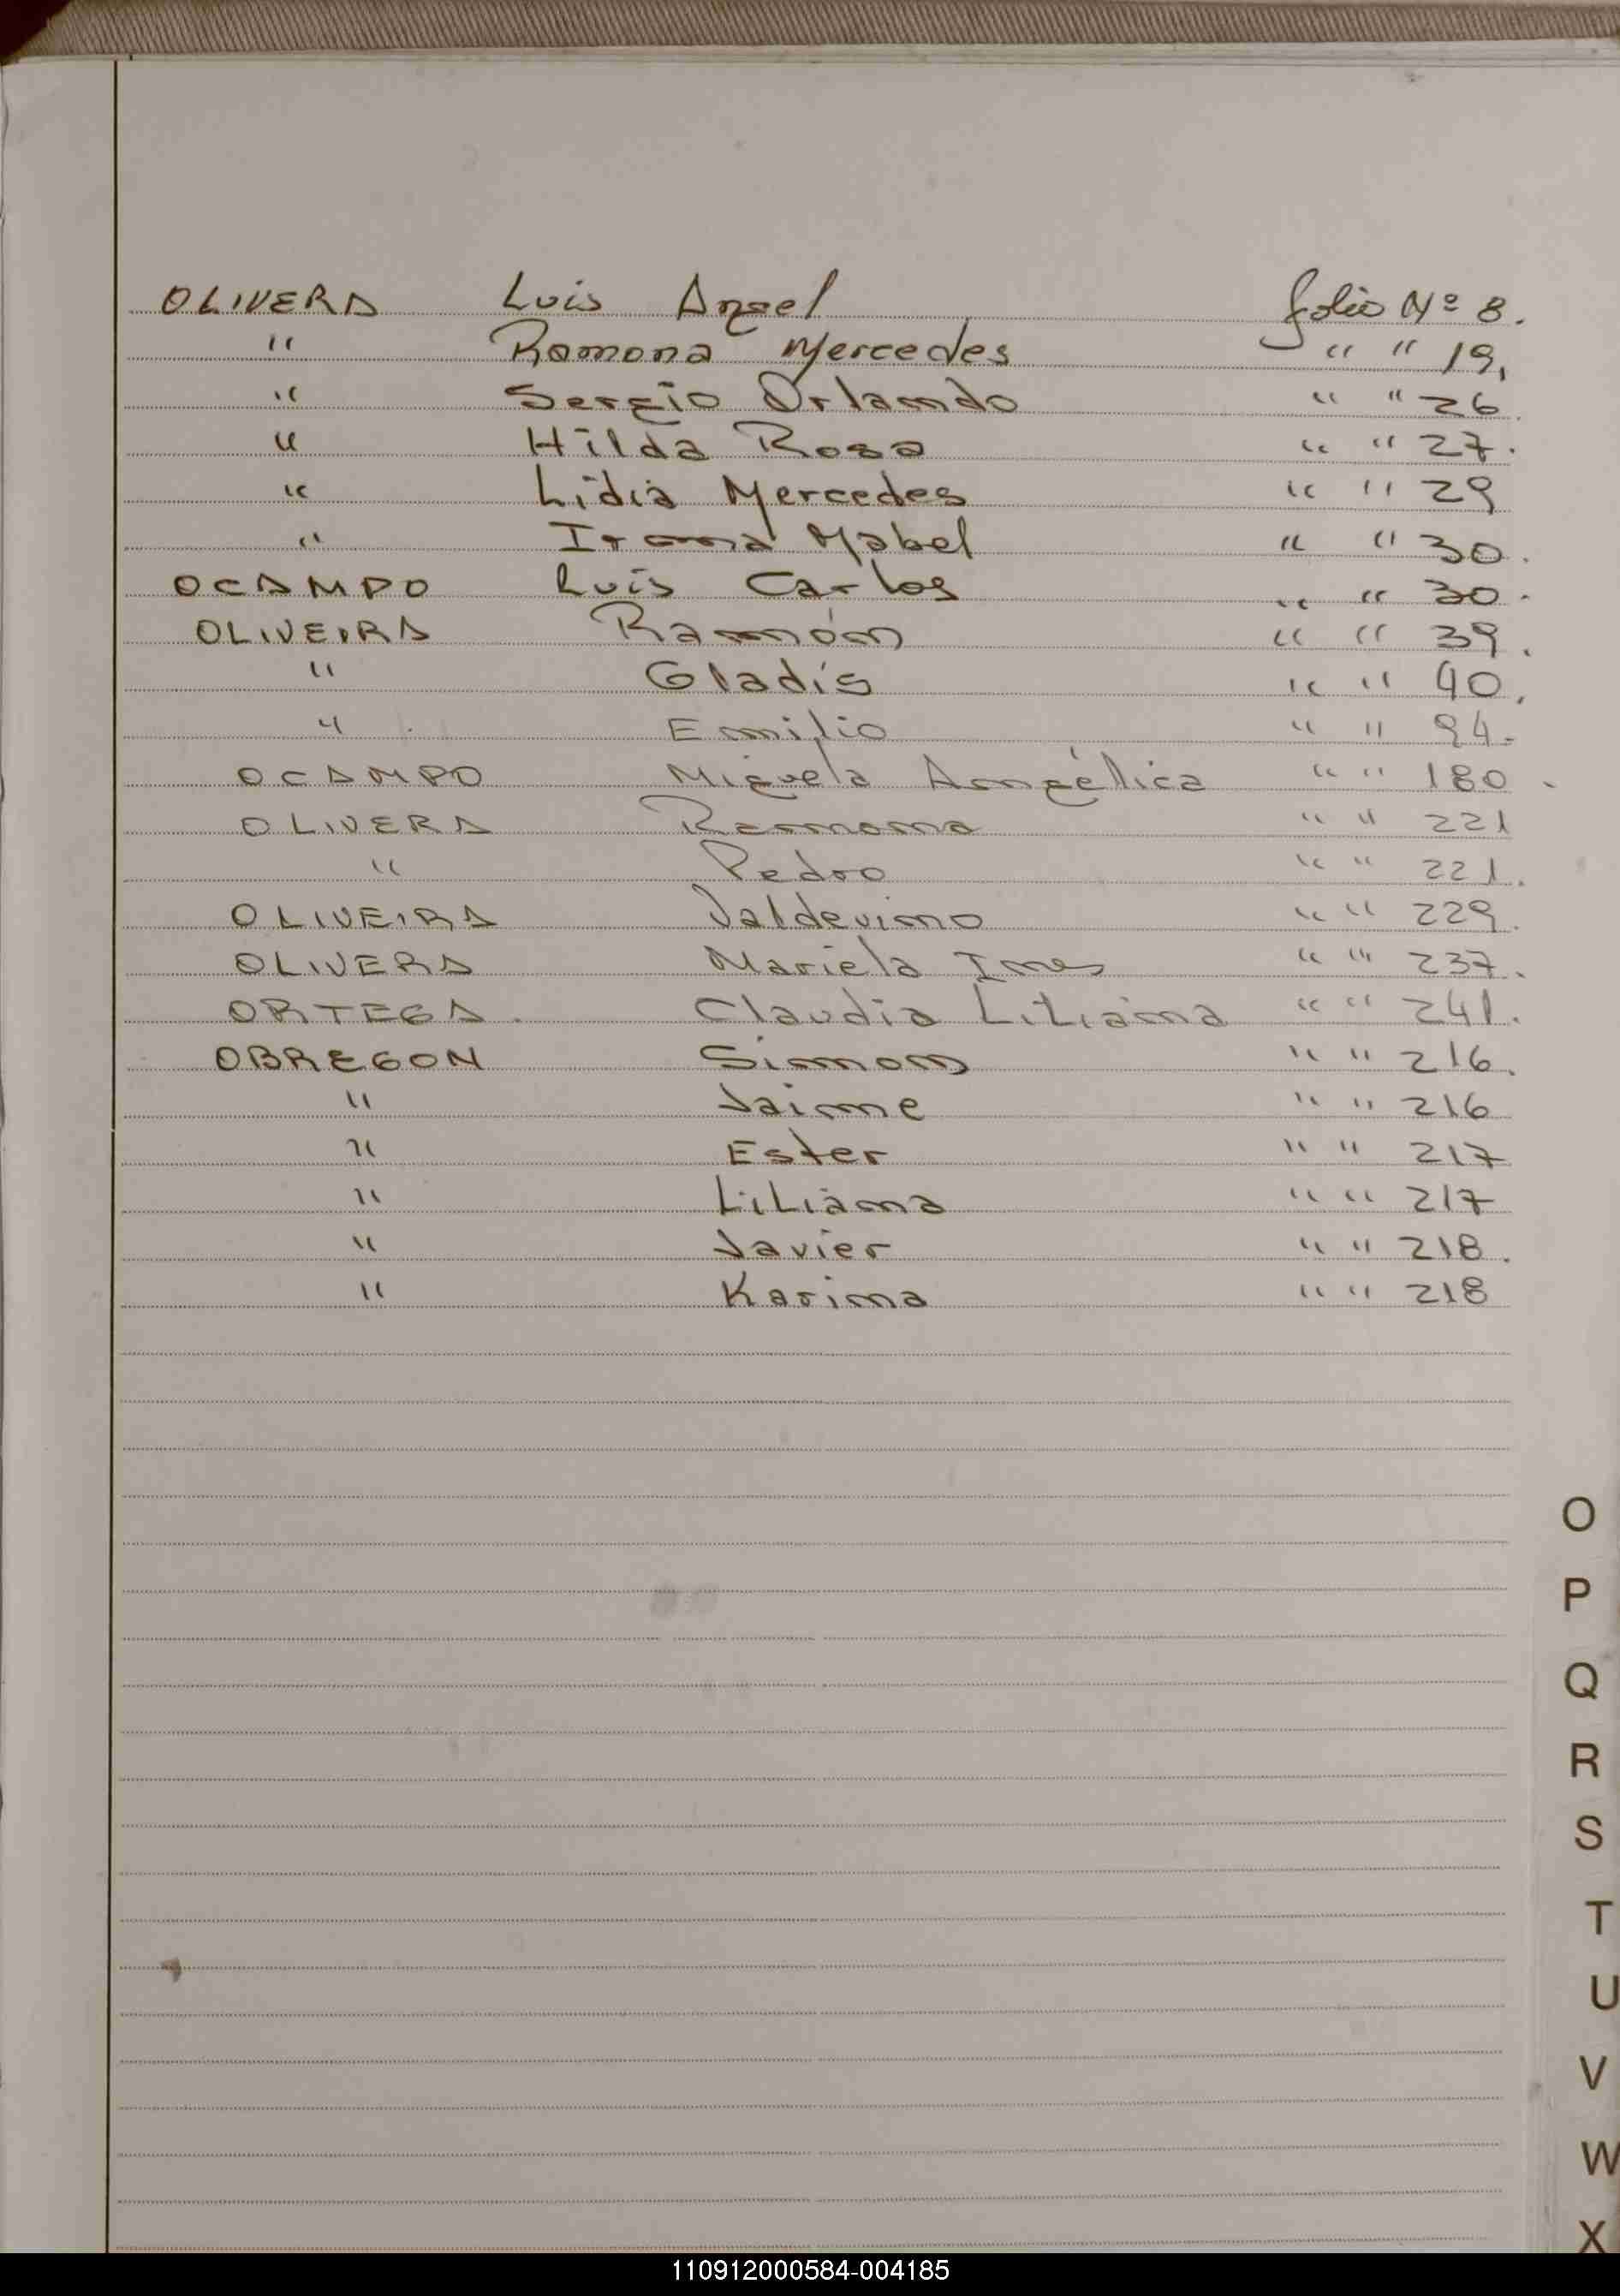 OLIVERA Luis Angel folio Nº 8.
" Ramona Mercedes " " 19.
" Sergio Orlando " " 26.
" Hilda Rosa " " 27.
" Lidia Mercedes " " 29
" Irma Mabel " " 30.
OCAMPO Luis Carlos " " 30.
OLIVEIRA Ramón " " 39.
" Gladis " " 40.
" Emilio " " 94.
OCAMPO Miguela Angélica " " 180.
OLIVERA Ramona " " 221
" Pedro " " 221.
OLIVEIRA Valdevino " " 229.
OLIVERA Mariela Ines " " 237.
ORTEGA. Claudia Liliana " " 241.
OBREGON Simon " " 216.
" Jaime " " 216
" Ester " " 217
" Liliana " " 217
" Javier " " 218.
" Karina " " 218
O
P
Q
R
S
T
U
V
W
X
110912000584-004185